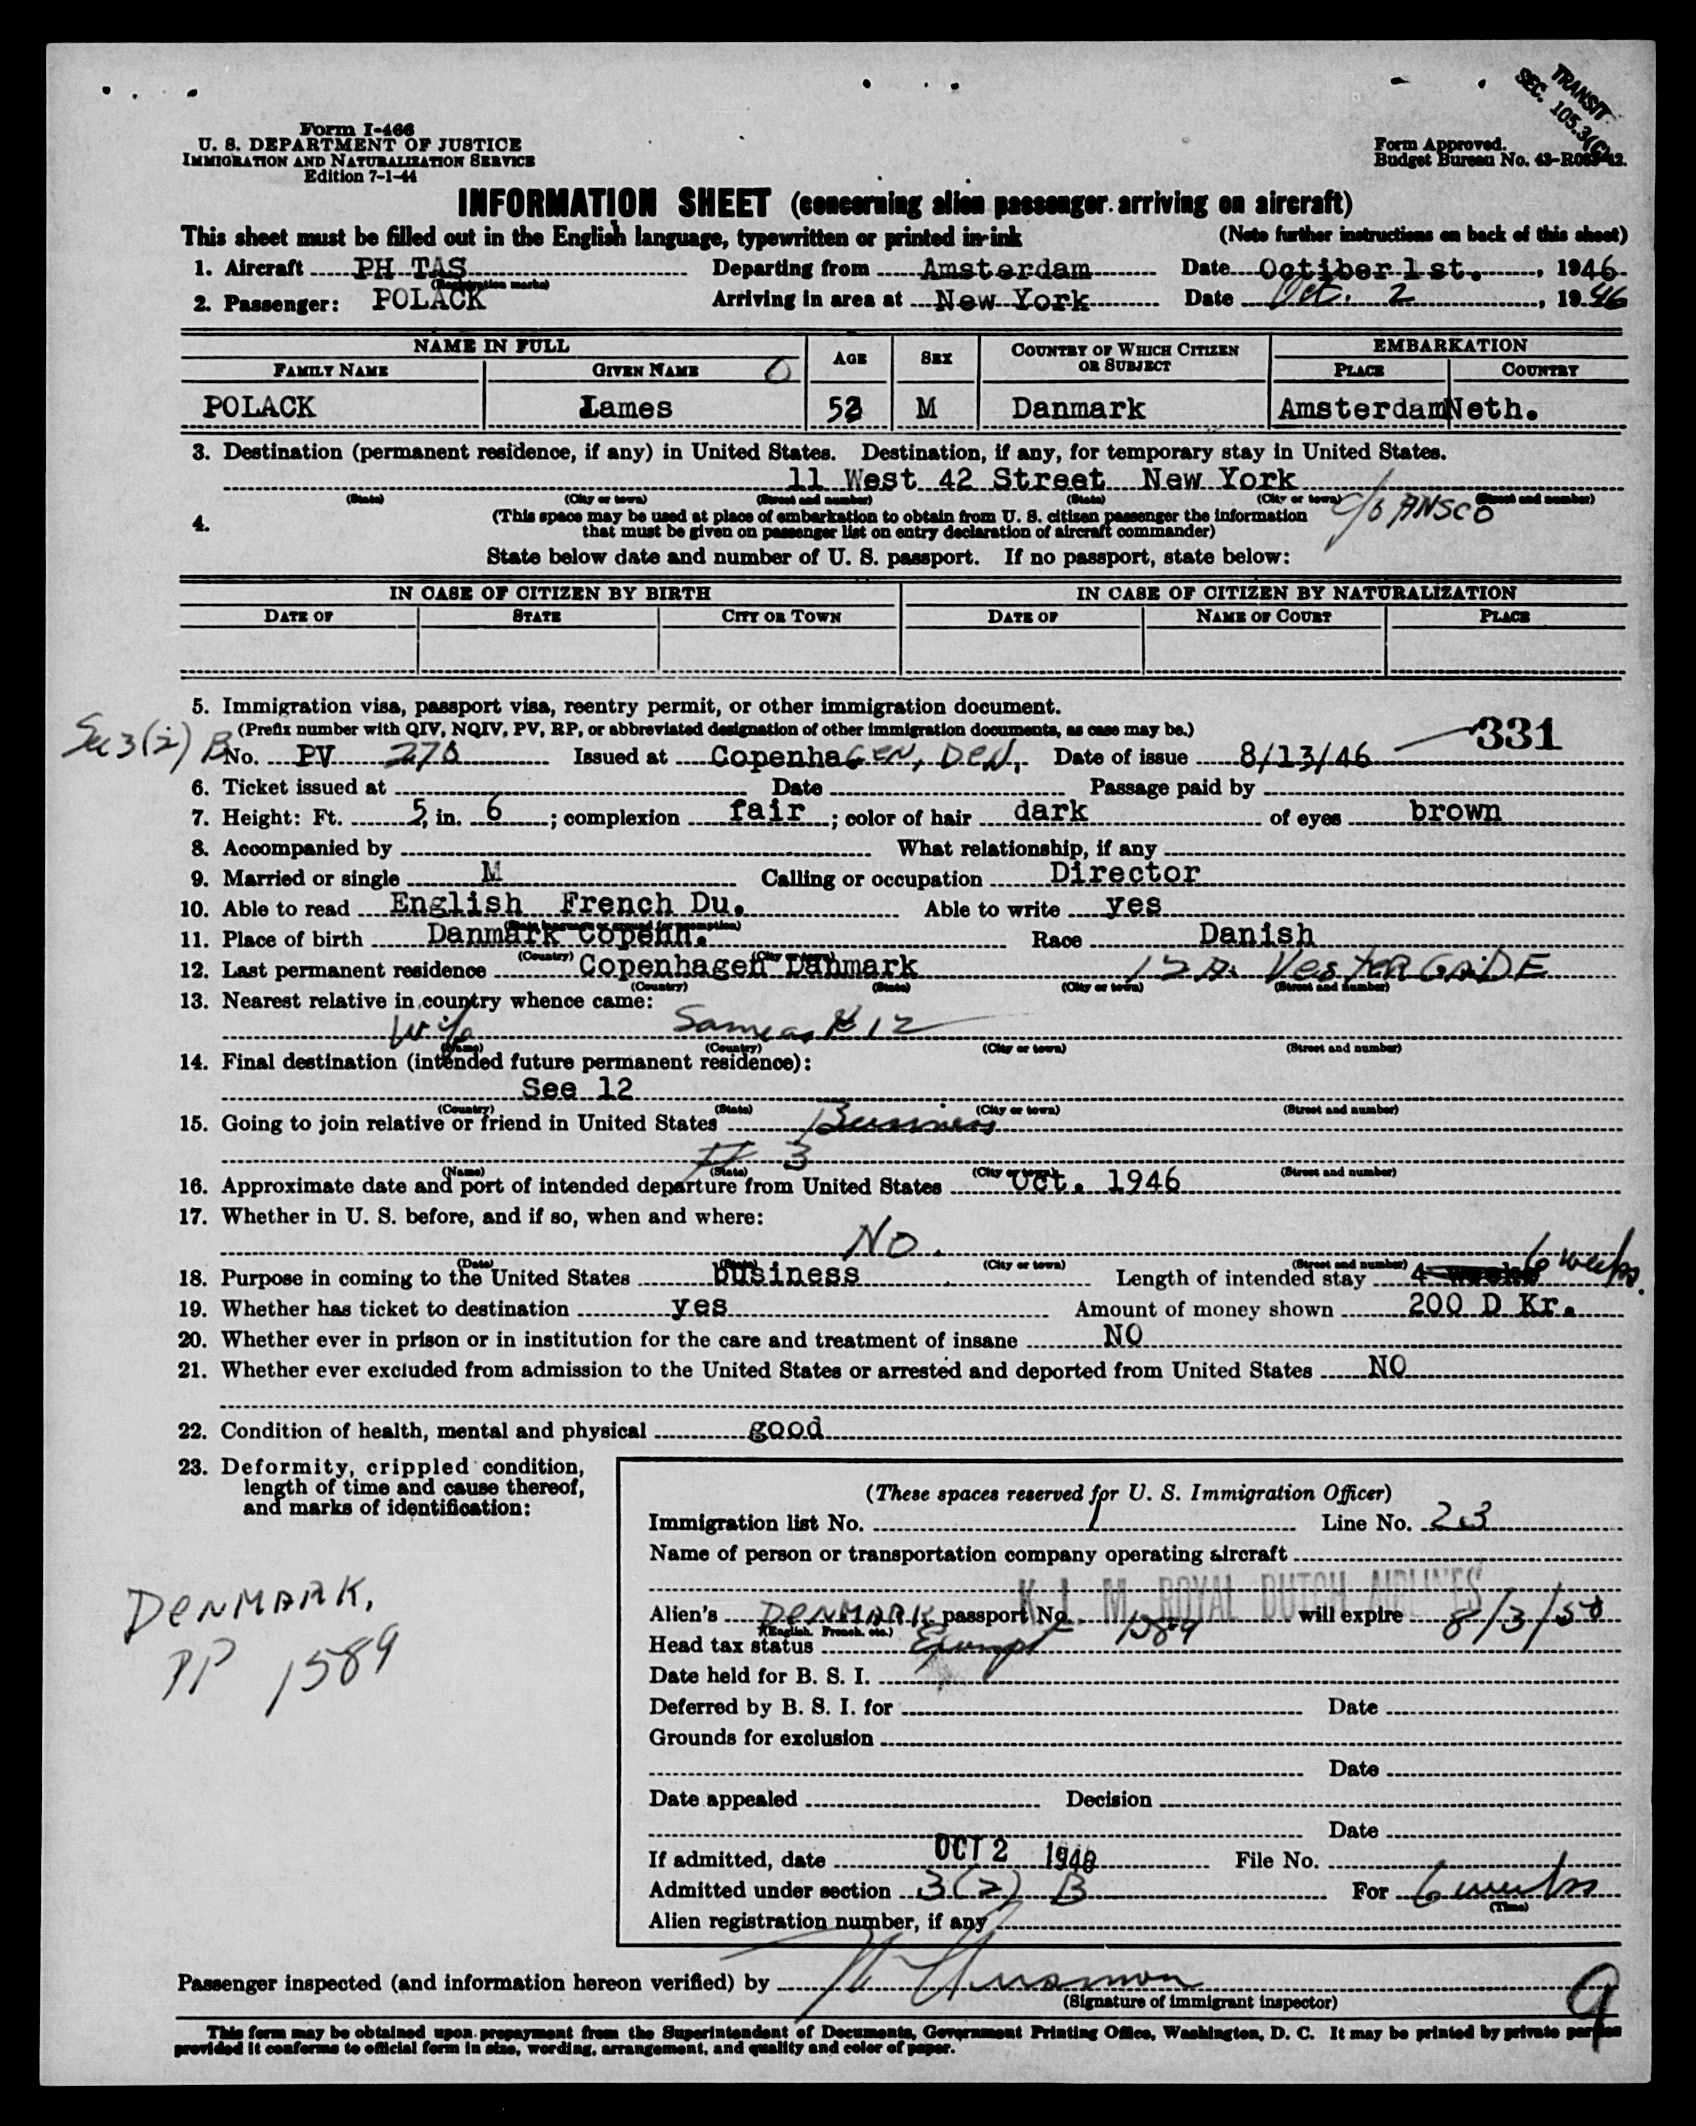 TRANSIT
SEC. 105.3(C)
Form I-466
U. S. DEPARTMENT OF JUSTICE
IMMIGRATION AND NATURALIZATION SERVICE
Edition 7-1-44
Form Approved.
Budget Bureau No. 43-R063-42.
INFORMATION SHEET (concerning alien passenger arriving on aircraft)
This sheet must be filled out in the English language, typewritten or printed in ink (Note further instructions on back of this sheet)
1. Aircraft PH TAS Departing from Amsterdam Date Octiber 1st. , 1946
(Registration marks)
2. Passenger: POLACK Arriving in area at New York Date Oct. 2 , 1946
NAME IN FULL AGE SEX COUNTRY OF WHICH CITIZEN OR SUBJECT EMBARKATION
FAMILY NAME GIVEN NAME O PLACE COUNTRY
POLACK Iames 53 M Danmark Amsterdam Neth.
3. Destination (permanent residence, if any) in United States. Destination, if any, for temporary stay in United States.
11 West 42 Street New York
(State) (City or town) (Street and number) (State) (City or town) (Street and number)
c/o ANSCO
4. (This space may be used at place of embarkation to obtain from U. S. citizen passenger the information
that must be given on passenger list on entry declaration of aircraft commander)
State below date and number of U. S. passport. If no passport, state below:
IN CASE OF CITIZEN BY BIRTH IN CASE OF CITIZEN BY NATURALIZATION
DATE OF STATE CITY OR TOWN DATE OF NAME OF COURT PLACE
5. Immigration visa, passport visa, reentry permit, or other immigration document.
(Prefix number with QIV, NQIV, PV, RP, or abbreviated designation of other immigration documents, as case may be.) 331
Sec 3(2) B No. PV 276 Issued at CopenhaGEN, DEN. Date of issue 8/13/46
6. Ticket issued at Date Passage paid by
7. Height: Ft. 5, in. 6 ; complexion fair ; color of hair dark of eyes brown
8. Accompanied by What relationship, if any
9. Married or single M Calling or occupation Director
10. Able to read English French Du. Able to write yes
11. Place of birth Danmark Copenh. Race Danish
(Country) (City or town)
12. Last permanent residence Copenhagen Danmark VESTERGADE
(Country) (State) (City or town) (Street and number)
13. Nearest relative in country whence came:
Wife Same as # 12
(Name) (Country) (City or town) (Street and number)
14. Final destination (intended future permanent residence):
See 12
(Country) (State) (City or town) (Street and number)
15. Going to join relative or friend in United States Business
# 3
(Name) (State) (City or town) (Street and number)
16. Approximate date and port of intended departure from United States Oct. 1946
17. Whether in U. S. before, and if so, when and where:
NO.
(Date) (State) (City or town) (Street and number)
18. Purpose in coming to the United States business Length of intended stay 4 weeks 6 weeks.
19. Whether has ticket to destination yes Amount of money shown 200 D Kr.
20. Whether ever in prison or in institution for the care and treatment of insane NO
21. Whether ever excluded from admission to the United States or arrested and deported from United States NO
22. Condition of health, mental and physical good
23. Deformity, crippled condition,
length of time and cause thereof,
and marks of identification:
DENMARK.
PP 1589
(These spaces reserved for U. S. Immigration Officer)
Immigration list No. 1 Line No. 23
Name of person or transportation company operating aircraft
K L M ROYAL DUTCH AIRLINES
Alien's DENMARK passport No. 1589 will expire 8/3/50
(English, French, etc.)
Head tax status Exempt
Date held for B. S. I.
Deferred by B. S. I. for Date
Grounds for exclusion
Date
Date appealed Decision
Date
If admitted, date OCT 2 1946 File No.
Admitted under section 3(2) B For 6 weeks
(Time)
Alien registration number, if any
Passenger inspected (and information hereon verified) by
(Signature of immigrant inspector)
9
This form may be obtained upon prepayment from the Superintendent of Documents, Government Printing Office, Washington, D. C. It may be printed by private parties
provided it conforms to official form in size, wording, arrangement, and quality and color of paper.